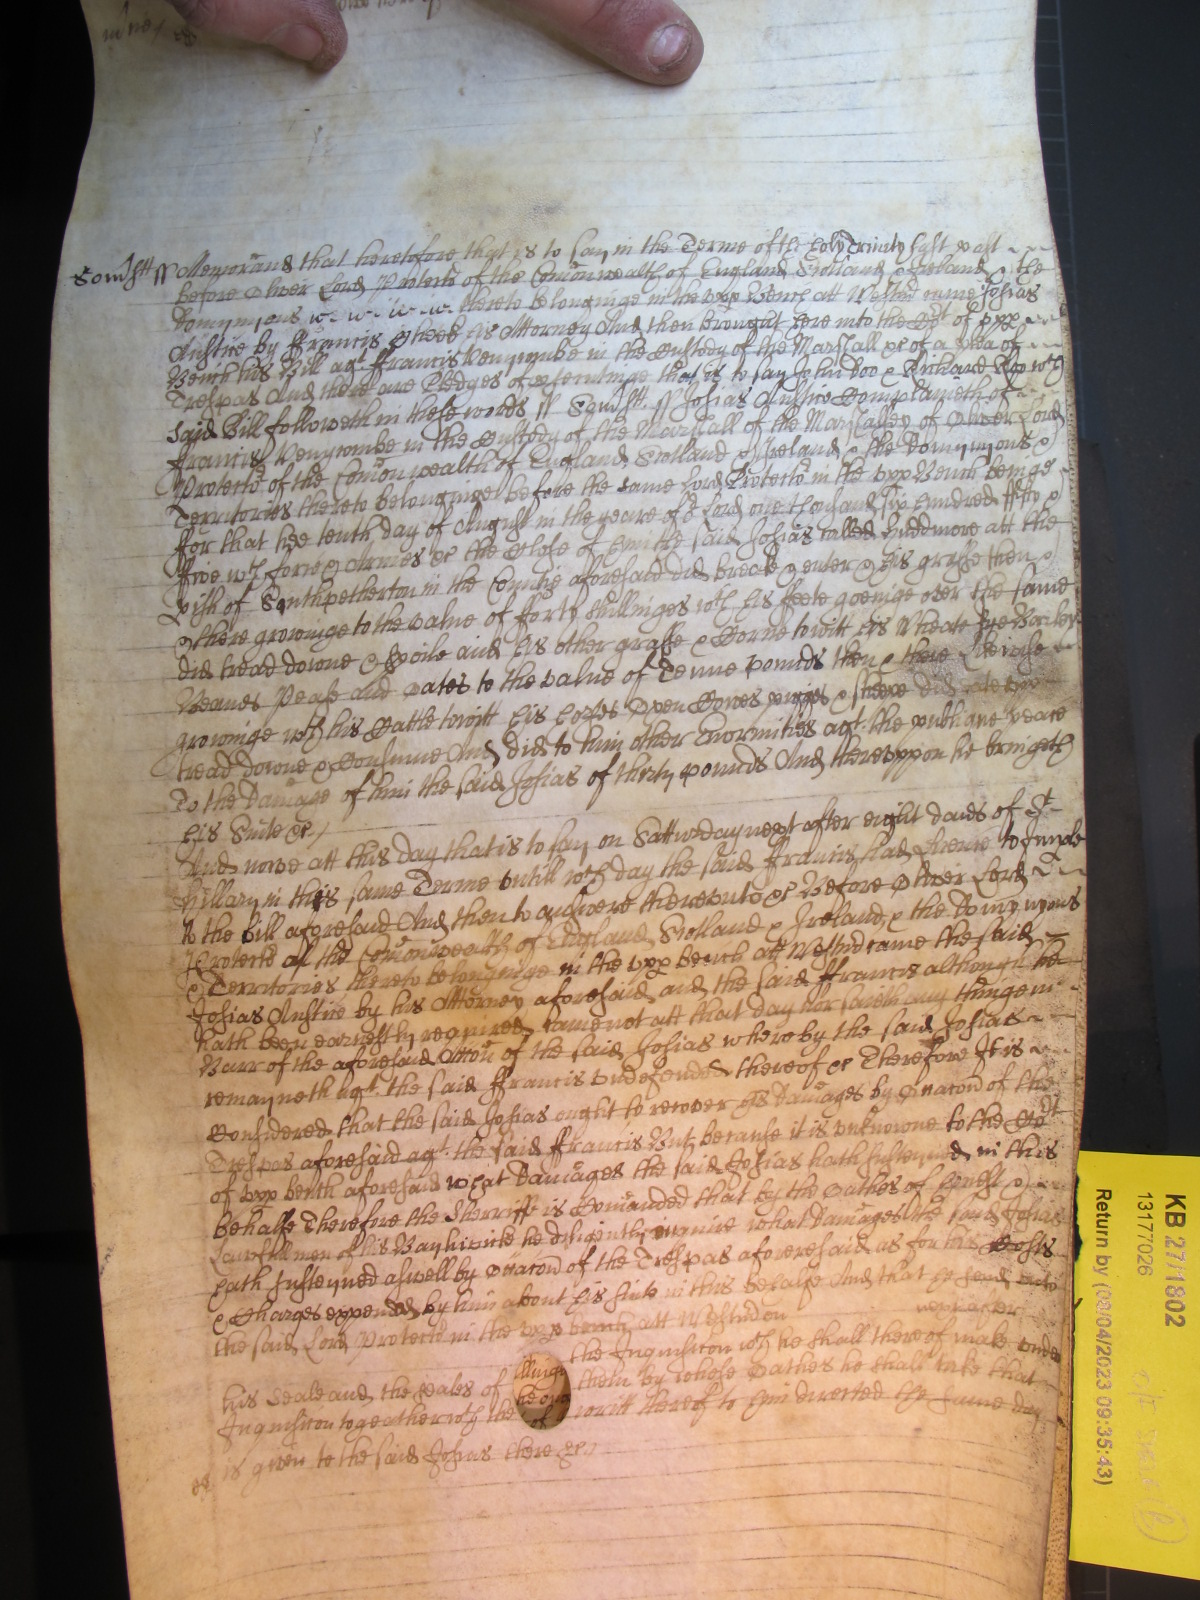 Som̃sett ss Memorand that heretofore that is to say in the Terme of the holy Trinity last past
before Oliver Lord Protector of the Comonwealth of England Scotland & Ireland & the
Domynions &c thereto belonginge in the upp Bench att Westm̃ came Josias
Anstice by Francis his Attorney And then brought here into the Cot of upp
Bench his Bill agt Francis Venycombe in the Custody of the Marshall &c of a Plea of
Trespas And there are Pledges of prosecutinge that is to say John Doo & Richard Roo wch
said Bill followeth in these words ss Som̃sett ss Josias Anstice Complaineth of
Francis Venycombe in the Custody of the Marshall of the Marshalsey of Oliver Lord
Protector of the Comonwealth of England Scotland & Ireland & the Domynyons &
Territories thereto belonginge before the same Lord Protector in the upp Bench beinge
for that hee tenth day of August in the yeare of or Lord one thousand six hundred fifty &
five wth force & armes &c the Close of him the said Josias called Huddmore att the
pish of Southpetherton in the Countie aforesaid did breake & enter & his grasse then &
there growinge to the value of forty shillinges wth his feete goeinge over the same
did tread downe & spoile and his other grasse & Corne to witt his Wheate Rye Barley
Beanes Pease and Oates to the value of Tenne pounds then & there likewise
growinge wth his Cattle to witt his horses Oxen Cowes pigges & sheepe did eate upp
tread downe & Consume And did to him other Enormities agt the publique peace
To the Damage of him the said Josias of thirty pounds And thereuppon he bringeth
his Suite &c
And nowe att this day that is to say on Satturday next after eight daies of St
Hillary in this same Terme untill wch day the said Francis had licence to imple
to the bill aforesaid And then to answere thereunto &c Before Oliver Lord
Protector of the Comonwealth of England Scotland & Ireland & the Domynyons
& Territories thereto belonginge in the upp bench att Westm̃ came the said
Josias Anstice by his Attorney aforesaid and the said Francis although he
hath been earnestly required came not att that day nor saieth any thinge in
Barr of the aforesaid Accõn of the said Josias whereby the said Josias
remayneth agt the said Francis undefended thereof &c Therefore It is
Considered that the said Josias ought to recover his Damages by occacon of the
Trespas aforesaid agt the said Francis But because it is unknowne to the Cot
of upp bench aforesaid what Damages the said Josias hath susteyned in this
behalfe Therefore the Sherriffe is Comanded that by the Oathes of honest &
Lawfull men of his Bayliwicke he diligently enquire what Damages the said Josias
hath susteyned aswell by occacon of the Trespas aforesaid as for his Costs
& Charges expended by him about his suite in this behalfe And that he send unto
the said Lord Protector in the upp bench att Westm̃ on next after
the Inquisicon wch he shall thereof make under
his Seale and the Seales of them by whose Oathes he shall take that
Inquisicon togeather wth the writt thereof to him directed the same day
is given to the said Josias there &c
KB 27/1802
13177026
Return by (08/04/2023 09:35:43)